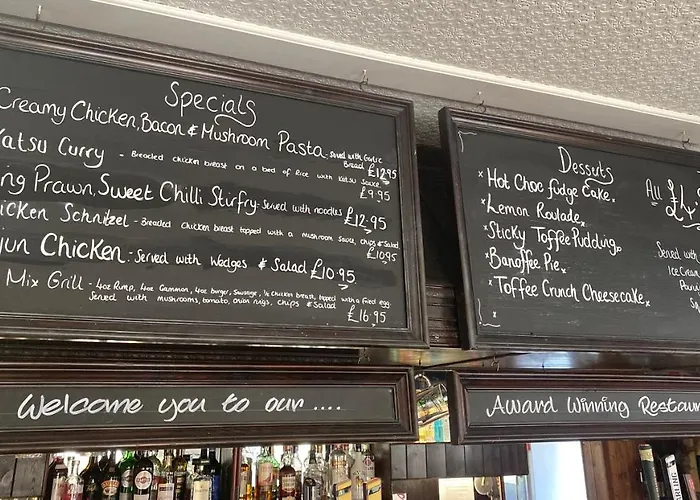 Specials
Creamy Chicken, Bacon & Mushroom Pasta - Served with Garlic
Bread £12.95
Katsu Curry - Breaded chicken breast on a bed of Rice with Katsu Sauce
£9.95
ng Prawn, Sweet Chilli Stirfry - Served with noodles £12.95
icken Schnitzel - Breaded chicken breast topped with a mushroom sauce, chips & Salad
£10.95
jun Chicken - Served with Wedges & Salad £10.95
Mix Grill - 4oz Rump, 4oz Gammon, 4oz burger, Sausage, ½ Chicken breast, topped with a Fried egg.
Served with mushrooms, tomato, onion rings, chips & Salad
£16.95
Desserts
* Hot Choc fudge Cake *
* Lemon Roulade *
* Sticky Toffee Pudding *
* Banoffee Pie *
* Toffee Crunch Cheesecake *
All
Served with
Ice Crea
Welcome you to our ....
Award Winning Restaur